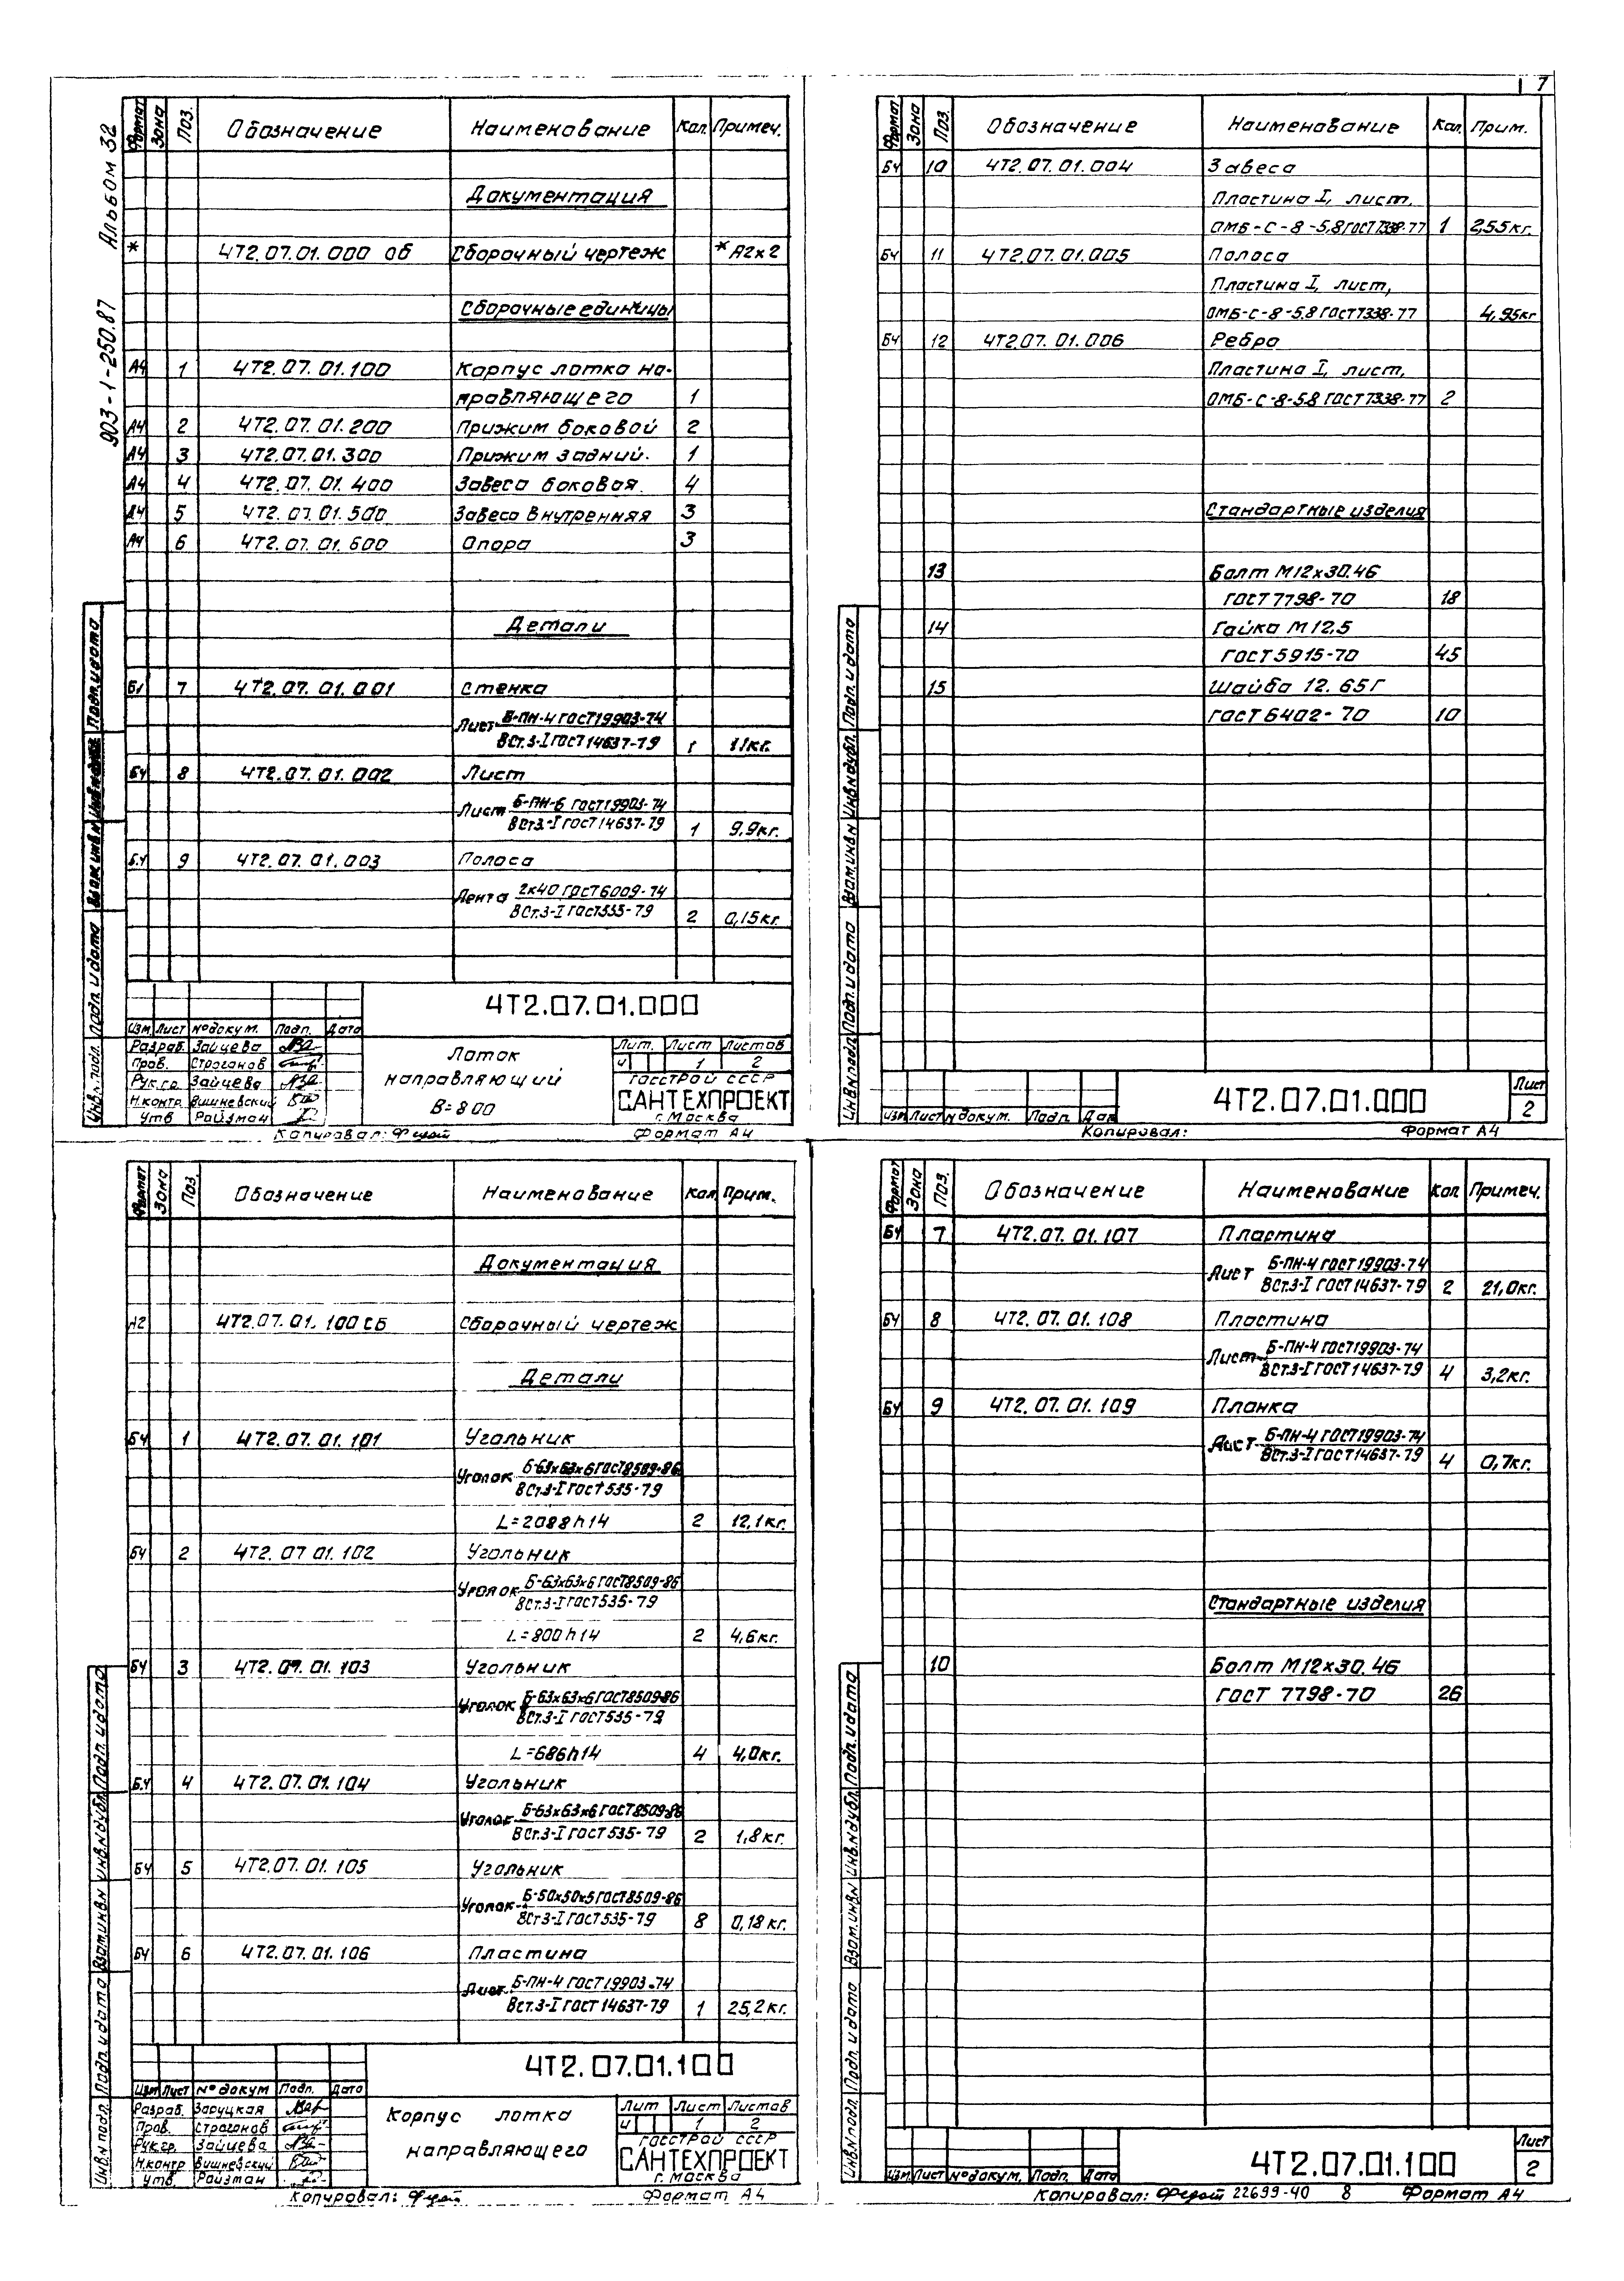 7
Альбом 32
903-1-250.87
Формат Зона Поз. Обозначение Наименование Кол. Примеч.
Документация
* 4Т2.07.01.000 об Сборочный чертеж *А2х2
Сборочные единицы
А4 1 4Т2.07.01.100 Корпус лотка на-
правляющего 1
А4 2 4Т2.07.01.200 Прижим боковой 2
А4 3 4Т2.07.01.300 Прижим задний. 1
А4 4 4Т2.07.01.400 Завеса боковая. 4
А4 5 4Т2.07.01.500 Завеса внутренняя 3
А4 6 4Т2.07.01.600 Опора 3
Детали
БЧ 7 4Т2.07.01.001 Стенка
Лист Б-ПН-4 ГОСТ19903-74
ВСт.3-I ГОСТ14637-79 1 11кг.
БЧ 8 4Т2.07.01.002 Лист
Лист Б-ПН-6 ГОСТ19903-74
ВСт3-I ГОСТ14637-79 1 9,9кг.
БЧ 9 4Т2.07.01.003 Полоса
Лента 2х40 ГОСТ6009-74
ВСт.3-I ГОСТ535-79 2 0,15кг.
Инв.№ подл. Подп. и дата Взам.инв.№ Подп. и дата
4Т2.07.01.000
Изм. Лист № докум. Подп. Дата
Разраб. Зайцева
Пров. Строганов
Рук.гр. Зайцева
Н.контр. Вишневский
Утв Райзман
Лоток
направляющий
В=800
Лит. Лист Листов
Ч 1 2
ГОССТРОЙ СССР
САНТЕХПРОЕКТ
г.Москва
Копировал: Формат А4
Формат Зона Поз. Обозначение Наименование Кол. Прим.
БЧ 10 4Т2.07.01.004 Завеса
Пластина I, лист,
ОМБ-С-8-5,8 ГОСТ7338-77 1 2,55кг.
БЧ 11 4Т2.07.01.005 Полоса
Пластина I, лист,
ОМБ-С-8-5,8 ГОСТ7338-77 4,95кг
БЧ 12 4Т2.07.01.006 Ребро
Пластина I, лист,
ОМБ-С-8-5,8 ГОСТ7338-77 2
Стандартные изделия
13 Болт М12х30.46
ГОСТ7798-70 18
14 Гайка М12.5
ГОСТ5915-70 45
15 Шайба 12.65Г
ГОСТ6402-70 10
Инв.№ подл. Подп. и дата Взам.инв.№ Инв.№ дубл. Подп. и дата
Изм Лист № докум. Подп. Дат
4Т2.07.01.000
Лист
2
Копировал: Формат А4
Формат Зона Поз. Обозначение Наименование Кол Прим.
Документация
А2 4Т2.07.01.100 СБ Сборочный чертеж
Детали
БЧ 1 4Т2.07.01.101 Угольник
Уголок Б-63х63х6 ГОСТ8509-86
ВСт.3-I ГОСТ535-79
L=2088h14 2 12,1кг.
БЧ 2 4Т2.07.01.102 Угольник
Уголок Б-63х63х6 ГОСТ8509-86
ВСт.3-I ГОСТ535-79
L=800h14 2 4,6кг.
БЧ 3 4Т2.07.01.103 Угольник
Уголок Б-63х63х6 ГОСТ8509-86
ВСт.3-I ГОСТ535-79
L=686h14 4 4,0кг.
БЧ 4 4Т2.07.01.104 Угольник
Уголок Б-63х63х6 ГОСТ8509-86
ВСт.3-I ГОСТ535-79 2 1,8кг.
БЧ 5 4Т2.07.01.105 Угольник
Уголок Б-50х50х5 ГОСТ8509-86
ВСт3-I ГОСТ535-79 8 0,18кг.
БЧ 6 4Т2.07.01.106 Пластина
Лист Б-ПН-4 ГОСТ19903-74
ВСт.3-I ГОСТ14637-79 1 25,2кг.
Инв.№ подл. Подп. и дата Взам.инв.№ Инв.№ дубл. Подп. и дата
4Т2.07.01.100
Изм Лист № докум Подп. Дата
Разраб. Заруцкая
Пров. Строганов
Рук.гр. Зайцева
Н.контр Вишневский
Утв. Райзман
Корпус лотка
направляющего
Лит Лист Листов
Ч 1 2
ГОССТРОЙ СССР
САНТЕХПРОЕКТ
г.Москва
Копировал: Формат А4
Формат Зона Поз. Обозначение Наименование Кол Примеч.
БЧ 7 4Т2.07.01.107 Пластина
Лист Б-ПН-4 ГОСТ19903-74
ВСт.3-I ГОСТ14637-79 2 21,0кг.
БЧ 8 4Т2.07.01.108 Пластина
Лист Б-ПН-4 ГОСТ19903-74
ВСт.3-I ГОСТ14637-79 4 3,2кг.
БЧ 9 4Т2.07.01.109 Планка
Лист Б-ПН-4 ГОСТ19903-74
ВСт.3-I ГОСТ14637-79 4 0,7кг.
Стандартные изделия
10 Болт М12х30.46
ГОСТ 7798-70 26
Инв.№ подл. Подп. и дата Взам.инв.№ Инв.№ дубл. Подп. и дата
Изм Лист № докум. Подп. Дата
4Т2.07.01.100
Лист
2
Копировал: 22699-40 8 Формат А4